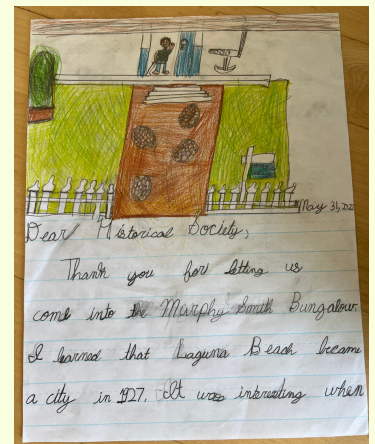 May 31, 202
Dear Historical Society,
Thank you for letting us
come into the Murphy Smith Bungalow.
I learned that Laguna Beach became
a city in 1927. It was interesting when